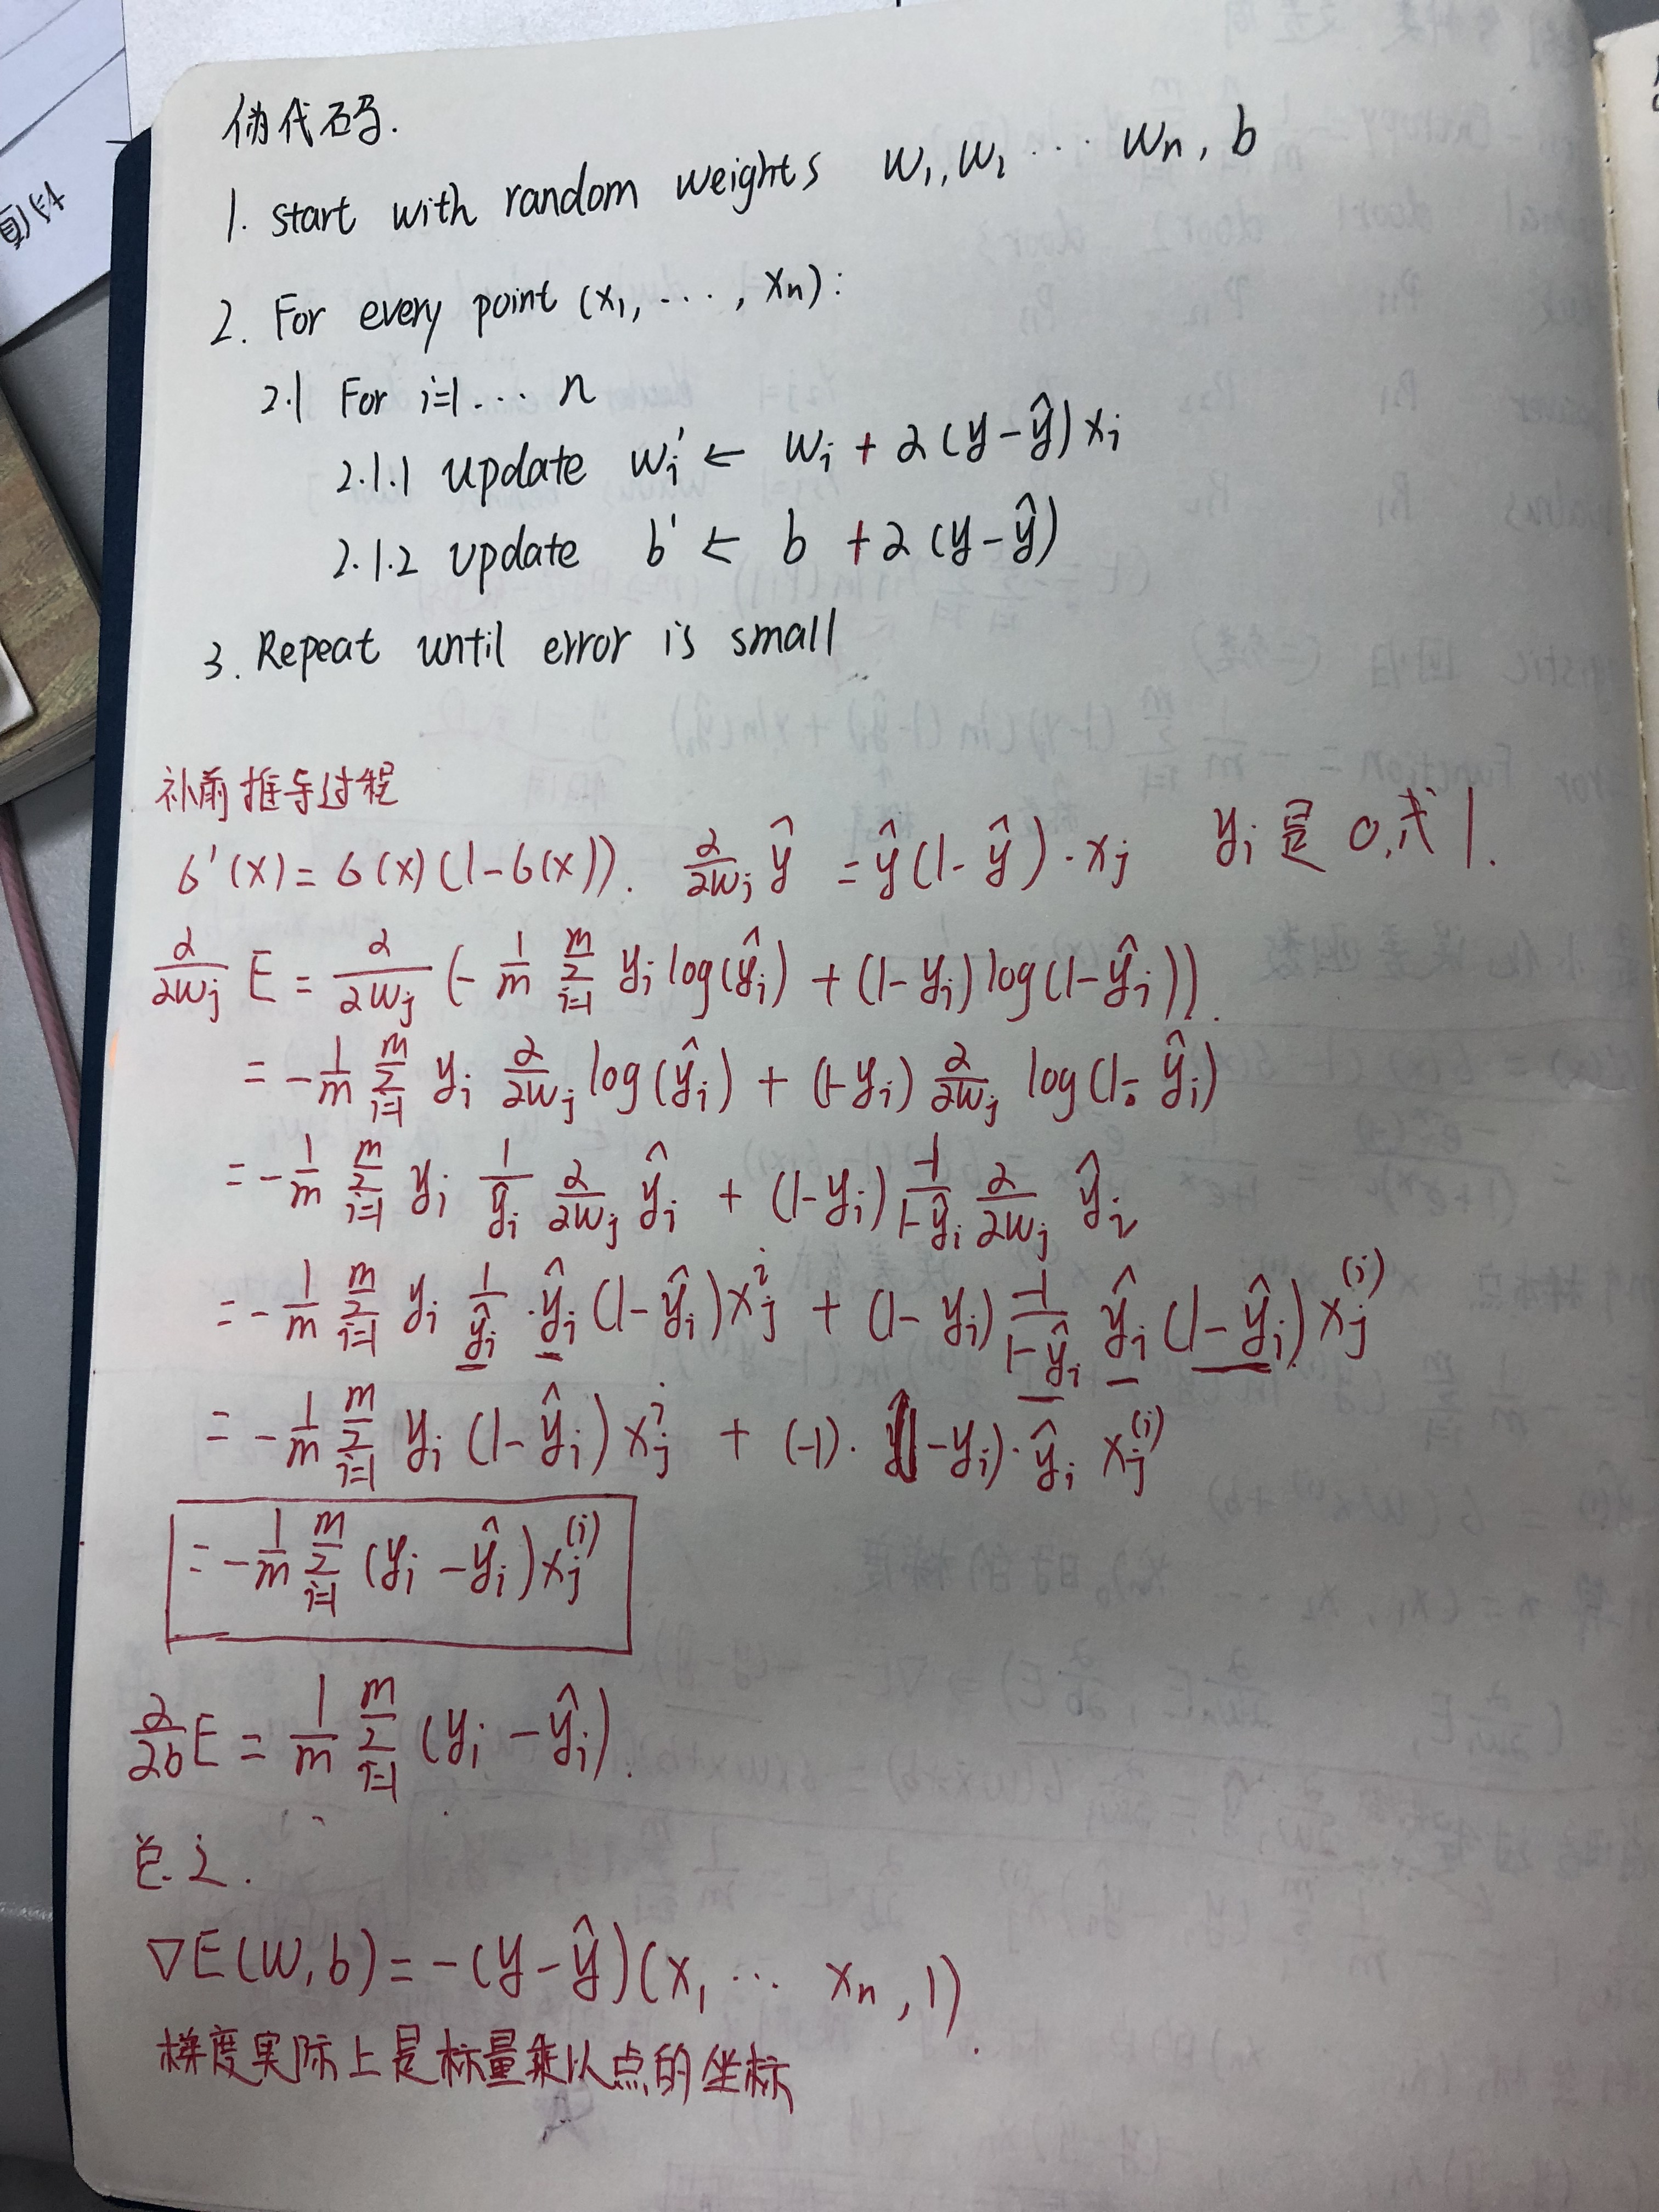 伪代码.
1. start with random weights w₁, w₂ ··· wₙ, b
2. For every point (x₁, ····, xₙ):
2.1 For i=1··· n
2.1.1 update wᵢ' ← wᵢ + α(y-ŷ)xᵢ
2.1.2 update b' ← b + α(y-ŷ)
3. Repeat until error is small
补前推导过程
σ'(x) = σ(x)(1-σ(x)). ∂/∂wⱼ ŷ = ŷ(1-ŷ)·xⱼ yᵢ是0,或1.
∂/∂wⱼ E = ∂/∂wⱼ (- 1/m Σᵢ₌₁ᵐ yᵢ log(ŷᵢ) + (1-yᵢ) log(1-ŷᵢ)).
= - 1/m Σᵢ₌₁ᵐ yᵢ ∂/∂wⱼ log(ŷᵢ) + (1-yᵢ) ∂/∂wⱼ log(1-ŷᵢ)
= - 1/m Σᵢ₌₁ᵐ yᵢ 1/ŷᵢ ∂/∂wⱼ ŷᵢ + (1-yᵢ) -1/(1-ŷᵢ) ∂/∂wⱼ ŷᵢ
= - 1/m Σᵢ₌₁ᵐ yᵢ 1/ŷᵢ · ŷᵢ(1-ŷᵢ)xⱼⁱ + (1-yᵢ) -1/(1-ŷᵢ) ŷᵢ(1-ŷᵢ)xⱼ⁽ⁱ⁾
= - 1/m Σᵢ₌₁ᵐ yᵢ(1-ŷᵢ)xⱼⁱ + (-1)·(1-yᵢ)·ŷᵢ xⱼ⁽ⁱ⁾
= - 1/m Σᵢ₌₁ᵐ (yᵢ-ŷᵢ)xⱼ⁽ⁱ⁾
∂/∂b E = 1/m Σᵢ₌₁ᵐ (yᵢ-ŷᵢ).
∇E(W,b) = -(y-ŷ)(x₁ ··· xₙ, 1).
梯度实际上是标量乘以点的坐标